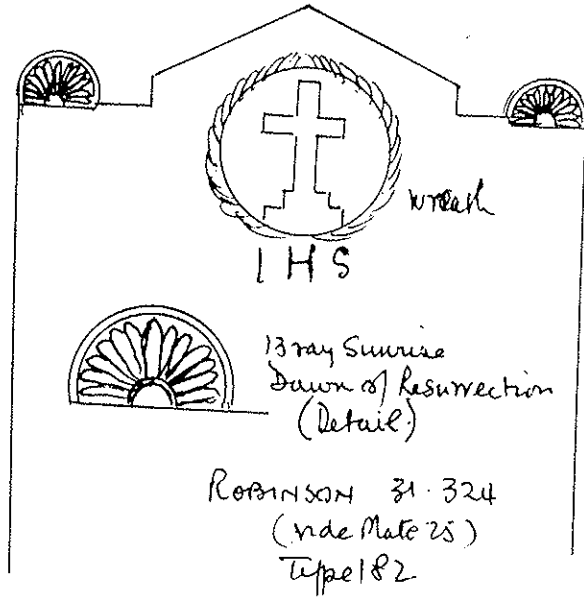 wreath
I H S
13 ray Sunrise
Dawn of Resurrection
(Detail)
ROBINSON 31.324
(vide Plate 25)
Type 182